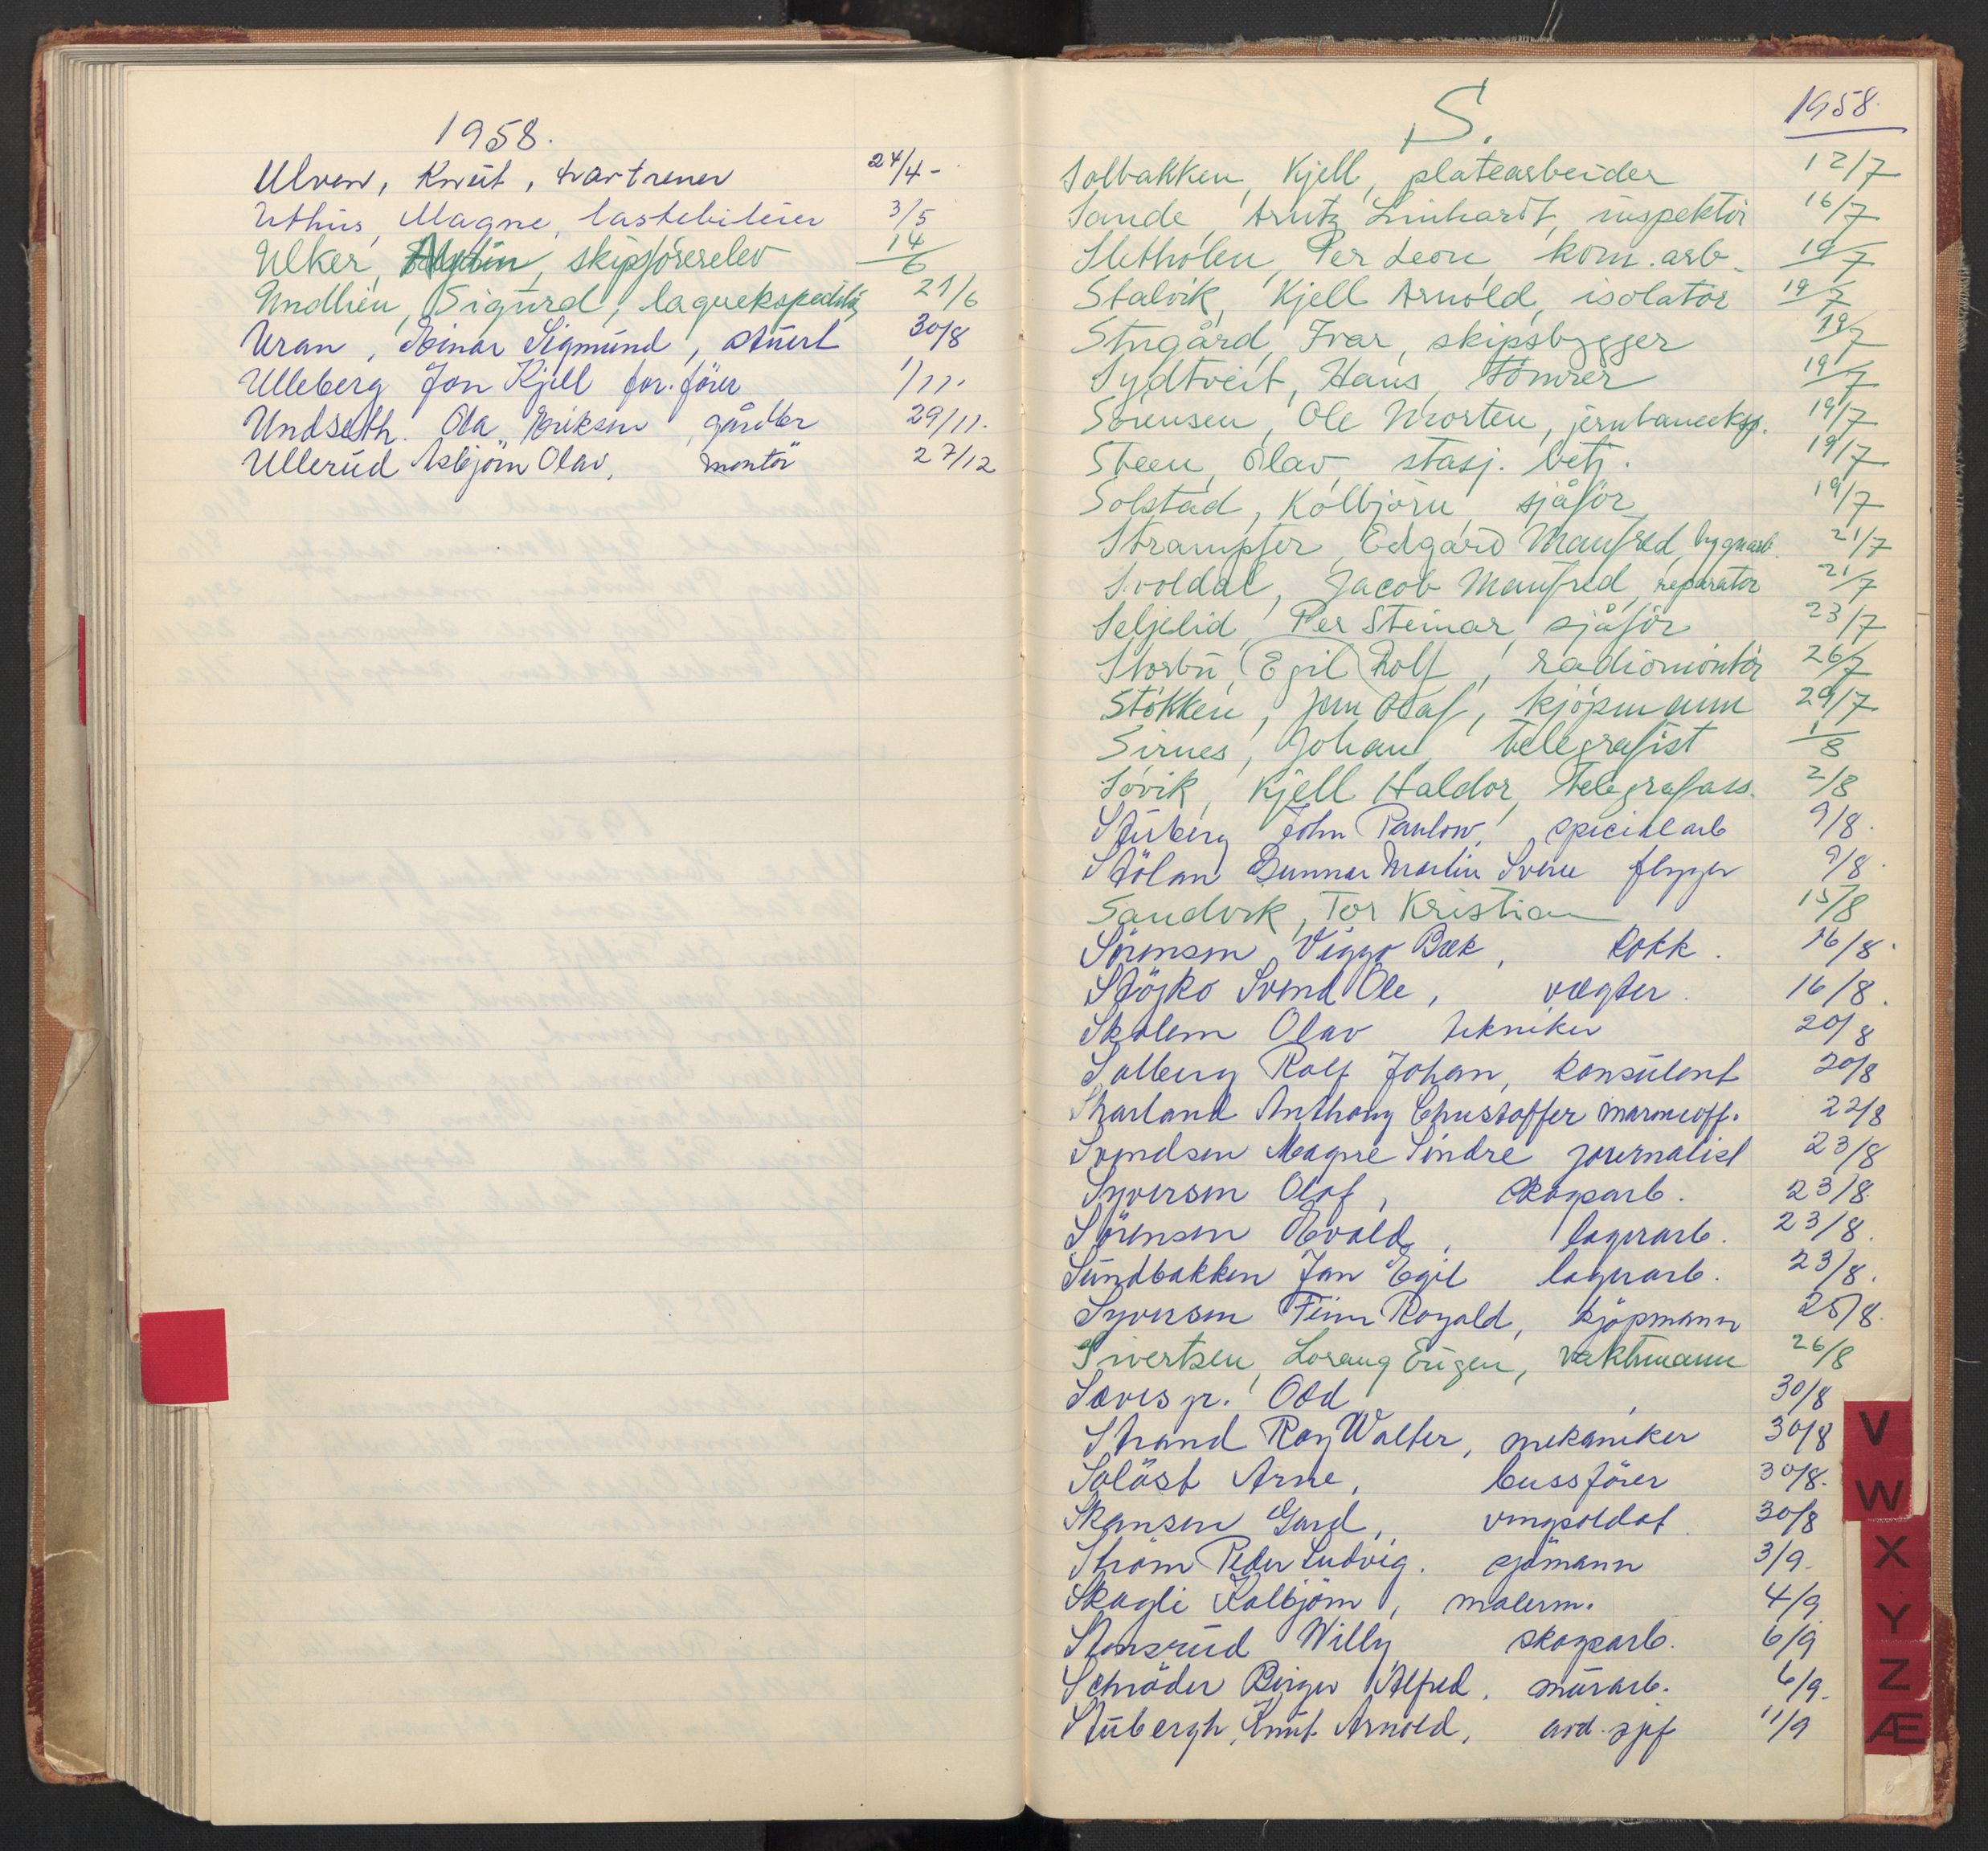 1958.
Ulven, Knut, travtrener 24/4-
Uthus, Magne, lastebileier 3/5
Ulker, skipsförerelev 14/6
Undlien, Sigurd, 21/6
Uran, Einar Sigmund, stuert 30/8
Ulleberg Jon Kjell for.förer 1/11.
Undseth. Ola Eriksen, gårdbr 29/11.
Ullerud Asbjörn Olav, montör 27/12
S. 1958.
Solbakken, Kjell, platearbeider 12/7
Sande, Arntz Linhardt, inspektör 16/7
Sletholen, Per Leon, kom.arb. 19/7
Stalvik, Kjell Arnold, isolatör 19/7
Stugård, Ivar, skipsbygger 19/7
Sydtveit, Hans, tömrer 19/7
Sörensen, Ole Morten, jernbaneeksp. 19/7
Steen, Olav, stasj. betj. 19/7
Solstad, Kolbjörn, sjåför 19/7
Strampfer, Edgard Manfred, bygnarb. 21/7
Svoldal, Jacob Manfred, reparatör 21/7
Seljelid, Per Steinar, sjåför 23/7
Storbu, (Egil) Rolf, radiomontör 26/7
Stökken, Jens Olaf, kjöpmann 29/7
Sirnes, Johan, telegrafist 1/8
Sövik, Kjell Haldor, telegrafass. 2/8
Stuberg John Paulow, specialarb 9/8.
Stölan Gunnar Martin Sverre flyger 9/8.
Sandvik, Tor Kristian 15/8
Sörensen Viggo Bæk, kokk. 16/8.
Stöjko Svend Ole, vægter. 16/8.
Skolem Olav tekniker 20/8
Solberg Rolf Johan, konsulent 20/8
Skarland Anthony Christoffer marineoff. 22/8
Svendsen Magne Sindre journalist 23/8
Syversen Olof, skogsarb. 23/8.
Sörensen Evald, lagerarb. 23/8.
Sundbakken Jan Egil lagerarb. 23/8.
Syversen Finn Roald, kjöpmann 25/8.
Sivertsen, Lorang Eugen, vaktmann 26/8
Sæves gr. Odd, 30/8
Strand Roy Walter, mekaniker 30/8
Solöst Arne, bussförer 30/8.
Skansen Gard, vingsoldat. 30/8
Ström Peder Ludvig. sjömann 3/9.
Skogli Kolbjörn, malerm. 4/9
Stensrud Willy skogsarb. 6/9
Schröder Birger Alfred, murarb. 6/9.
Stubergh, Knut Arnold, avd.sjef 11/9
V
W
X
Y
Z
Æ